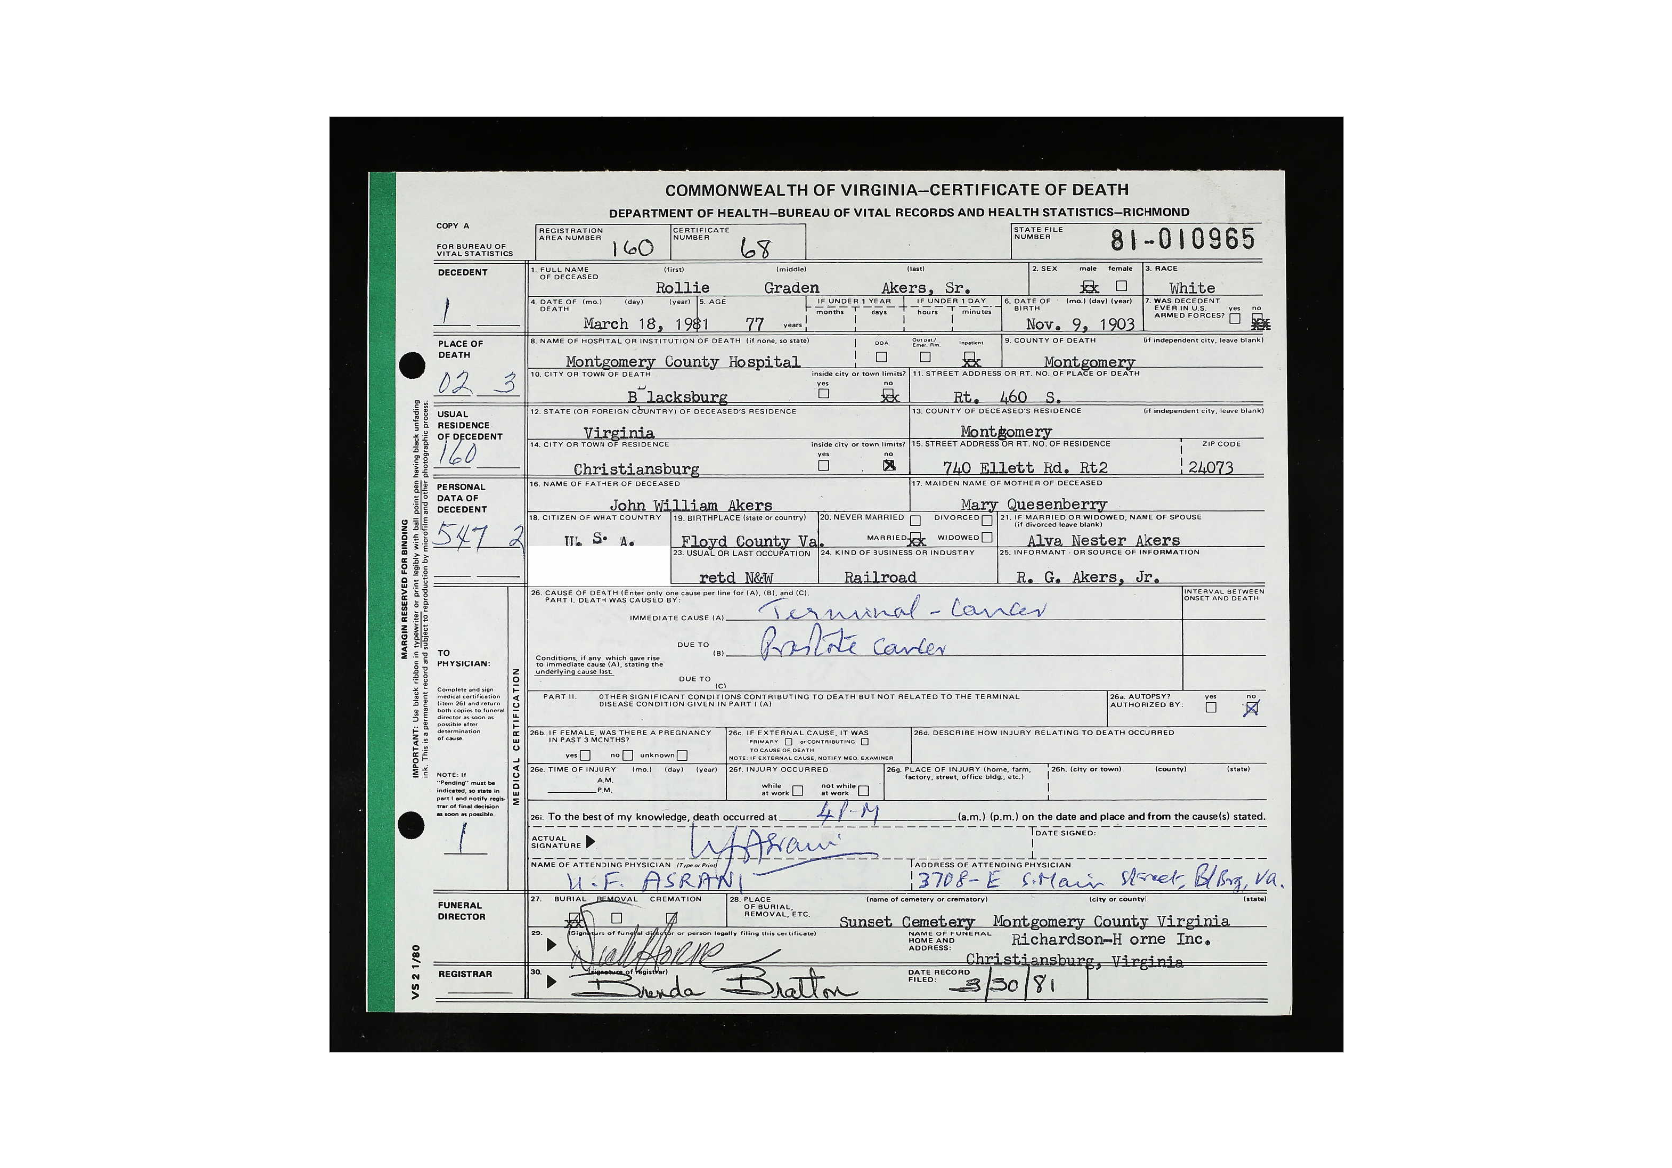 COMMONWEALTH OF VIRGINIA—CERTIFICATE OF DEATH
DEPARTMENT OF HEALTH—BUREAU OF VITAL RECORDS AND HEALTH STATISTICS—RICHMOND
COPY A
FOR BUREAU OF VITAL STATISTICS
REGISTRATION AREA NUMBER 160
CERTIFICATE NUMBER 68
STATE FILE NUMBER 81-010965
DECEDENT
1
1. FULL NAME OF DECEASED (first) (middle) (last)
Rollie Graden Akers, Sr.
2. SEX male female
xx
3. RACE
White
4. DATE OF DEATH (mo.) (day) (year)
March 18, 1981
5. AGE
77 years
IF UNDER 1 YEAR months days
IF UNDER 1 DAY hours minutes
6. DATE OF BIRTH (mo.) (day) (year)
Nov. 9, 1903
7. WAS DECEDENT EVER IN U.S. ARMED FORCES? yes no
xx
PLACE OF DEATH
02 3
8. NAME OF HOSPITAL OR INSTITUTION OF DEATH (if none, so state)
Montgomery County Hospital
DOA Out pat/ Emer. Rm. Inpatient
xx
9. COUNTY OF DEATH (if independent city, leave blank)
Montgomery
10. CITY OR TOWN OF DEATH inside city or town limits? yes no
B lacksburg xx
11. STREET ADDRESS OR RT. NO. OF PLACE OF DEATH
Rt. 460 S.
USUAL RESIDENCE OF DECEDENT
160
12. STATE (OR FOREIGN COUNTRY) OF DECEASED'S RESIDENCE
Virginia
13. COUNTY OF DECEASED'S RESIDENCE (if independent city, leave blank)
Montgomery
14. CITY OR TOWN OF RESIDENCE inside city or town limits? yes no
Christiansburg x
15. STREET ADDRESS OR RT. NO. OF RESIDENCE ZIP CODE
740 Ellett Rd. Rt2 24073
PERSONAL DATA OF DECEDENT
547 2
16. NAME OF FATHER OF DECEASED
John William Akers
17. MAIDEN NAME OF MOTHER OF DECEASED
Mary Quesenberry
18. CITIZEN OF WHAT COUNTRY
U. S. A.
19. BIRTHPLACE (state or country)
Floyd County Va.
20. NEVER MARRIED DIVORCED
MARRIED xx WIDOWED
21. IF MARRIED OR WIDOWED, NAME OF SPOUSE (if divorced leave blank)
Alva Nester Akers
23. USUAL OR LAST OCCUPATION
retd N&W
24. KIND OF BUSINESS OR INDUSTRY
Railroad
25. INFORMANT - OR SOURCE OF INFORMATION
R. G. Akers, Jr.
MARGIN RESERVED FOR BINDING
IMPORTANT: Use black ribbon in typewriter or print legibly with ball point pen having black unfading
ink. This is a permanent record and subject to reproduction by microfilm and other photographic process.
TO PHYSICIAN:
Complete and sign
medical certification
(item 26) and return
both copies to funeral
director as soon as
possible after
determination
of cause.
NOTE: If
"Pending" must be
indicated, so state in
part I and notify regis-
trar of final decision
as soon as possible.
1
MEDICAL CERTIFICATION
26. CAUSE OF DEATH (Enter only one cause per line for (A), (B), and (C).
PART I. DEATH WAS CAUSED BY:
INTERVAL BETWEEN ONSET AND DEATH
IMMEDIATE CAUSE (A) Terminal - Cancer
DUE TO (B) Prostate cancer
Conditions, if any which gave rise
to immediate cause (A), stating the
underlying cause last.
DUE TO (C)
PART II. OTHER SIGNIFICANT CONDITIONS CONTRIBUTING TO DEATH BUT NOT RELATED TO THE TERMINAL
DISEASE CONDITION GIVEN IN PART I (A)
26a. AUTOPSY? yes no
AUTHORIZED BY: X
26b. IF FEMALE, WAS THERE A PREGNANCY IN PAST 3 MONTHS?
yes no unknown
26c. IF EXTERNAL CAUSE, IT WAS
PRIMARY or CONTRIBUTING
TO CAUSE OF DEATH
NOTE: IF EXTERNAL CAUSE, NOTIFY MED. EXAMINER
26d. DESCRIBE HOW INJURY RELATING TO DEATH OCCURRED
26e. TIME OF INJURY (mo.) (day) (year)
A.M.
P.M.
26f. INJURY OCCURRED
while at work not while at work
26g. PLACE OF INJURY (home, farm, factory, street, office bldg., etc.)
26h. (city or town) (county) (state)
26i. To the best of my knowledge, death occurred at 4P-M (a.m.) (p.m.) on the date and place and from the cause(s) stated.
ACTUAL SIGNATURE UFAsrani
DATE SIGNED:
NAME OF ATTENDING PHYSICIAN (Type or Print)
U. F. ASRANI
ADDRESS OF ATTENDING PHYSICIAN
3708-E S. Main Street, BlBrg, Va.
FUNERAL DIRECTOR
27. BURIAL REMOVAL CREMATION
xx
28. PLACE OF BURIAL, REMOVAL, ETC. (name of cemetery or crematory) (city or county) (state)
Sunset Cemetery Montgomery County Virginia
29. (Signature of funeral director or person legally filing this certificate)
Horne
NAME OF FUNERAL HOME AND ADDRESS:
Richardson-H orne Inc.
Christiansburg, Virginia
REGISTRAR
30. (signature of registrar)
Brenda Bratton
DATE RECORD FILED: 3/30/81
VS 2 1/80